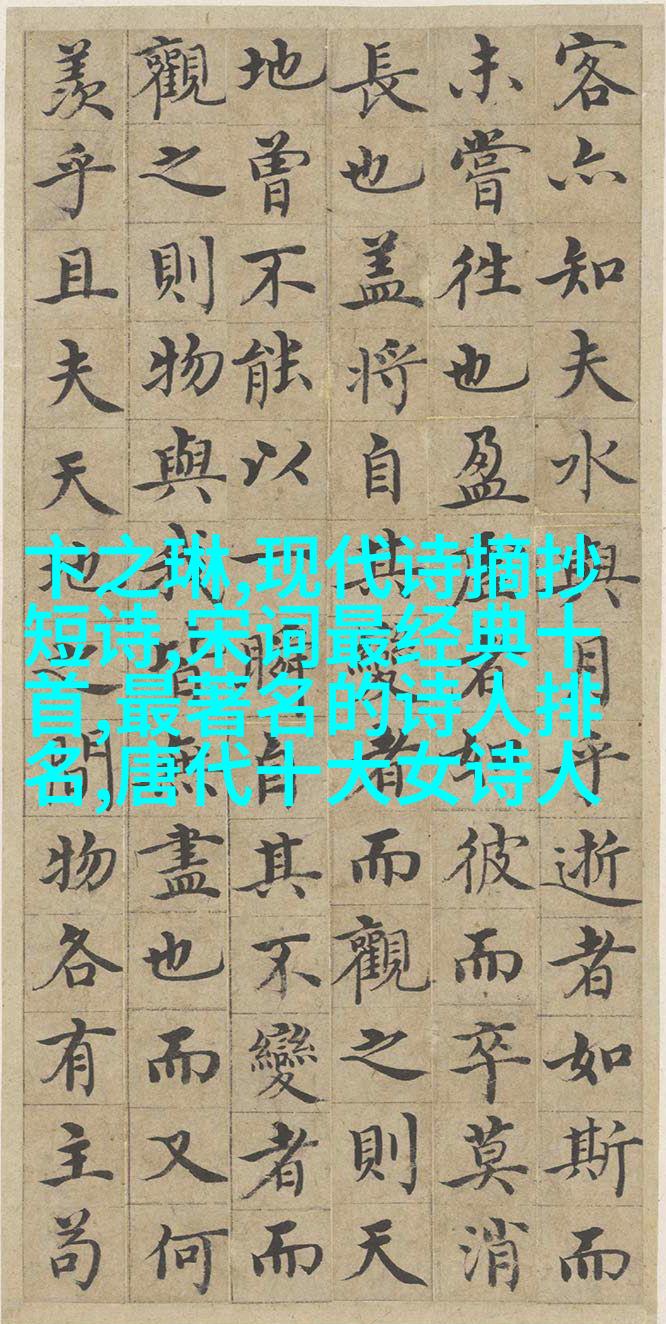 客亦知夫水與月乎逝者如斯而
未嘗往也盈虛者如彼而卒莫消
長也盖將自其變者而觀之則天
地曾不能以一瞬自其不變者而
觀之則物與我皆無盡也而又何
羨乎且夫天地之間物各有主苟
卞之琳,现代诗摘抄
短诗,宋词最经典十
首,最著名的诗人排
名,唐代十大女诗人